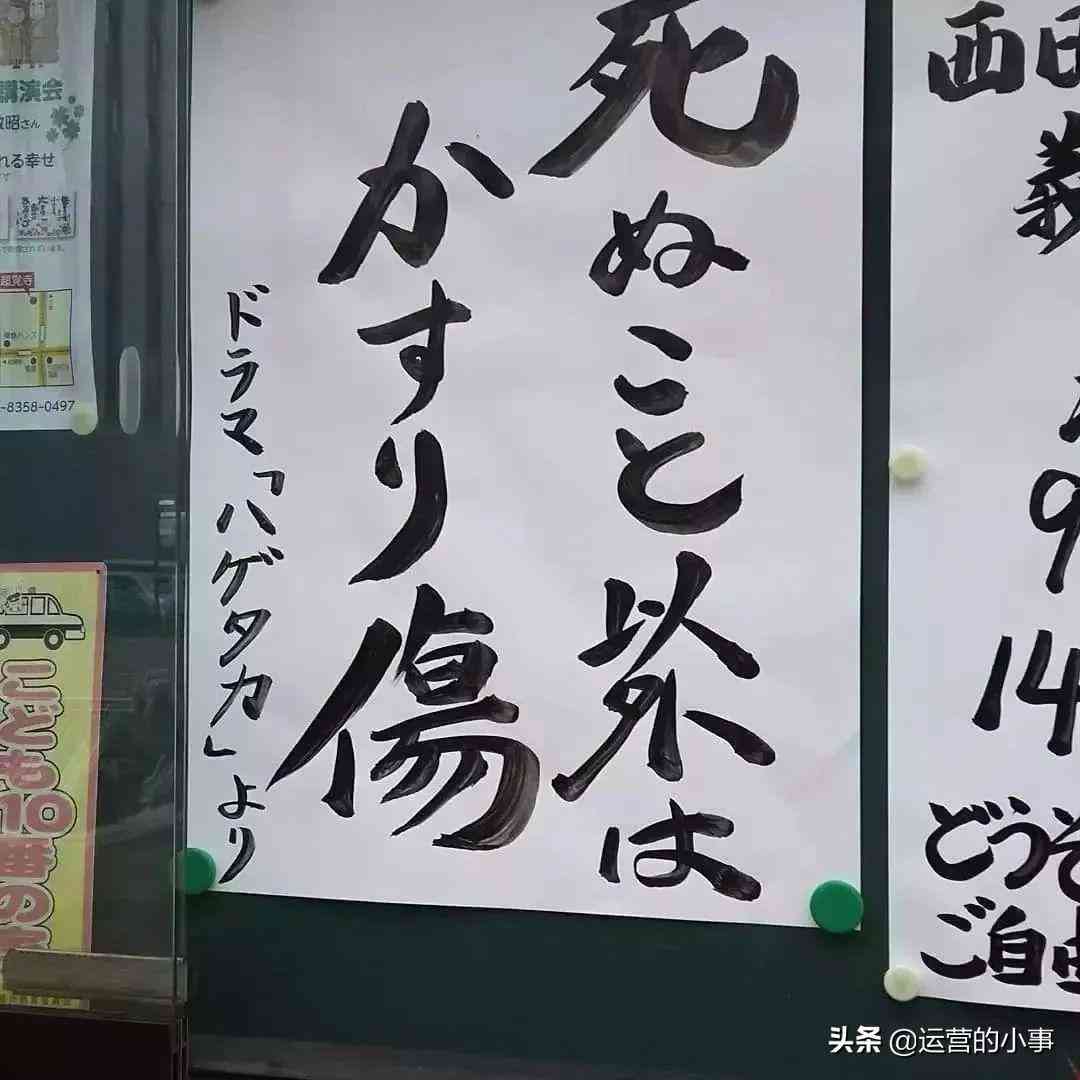 死ぬこと以外は
かすり傷
ドラマ「ハゲタカ」より
西田
義
9
14
どうぞ
ご自由
講演会
敏昭さん
れる幸せ
-8358-0497
こども10番の
头条 @运营的小事